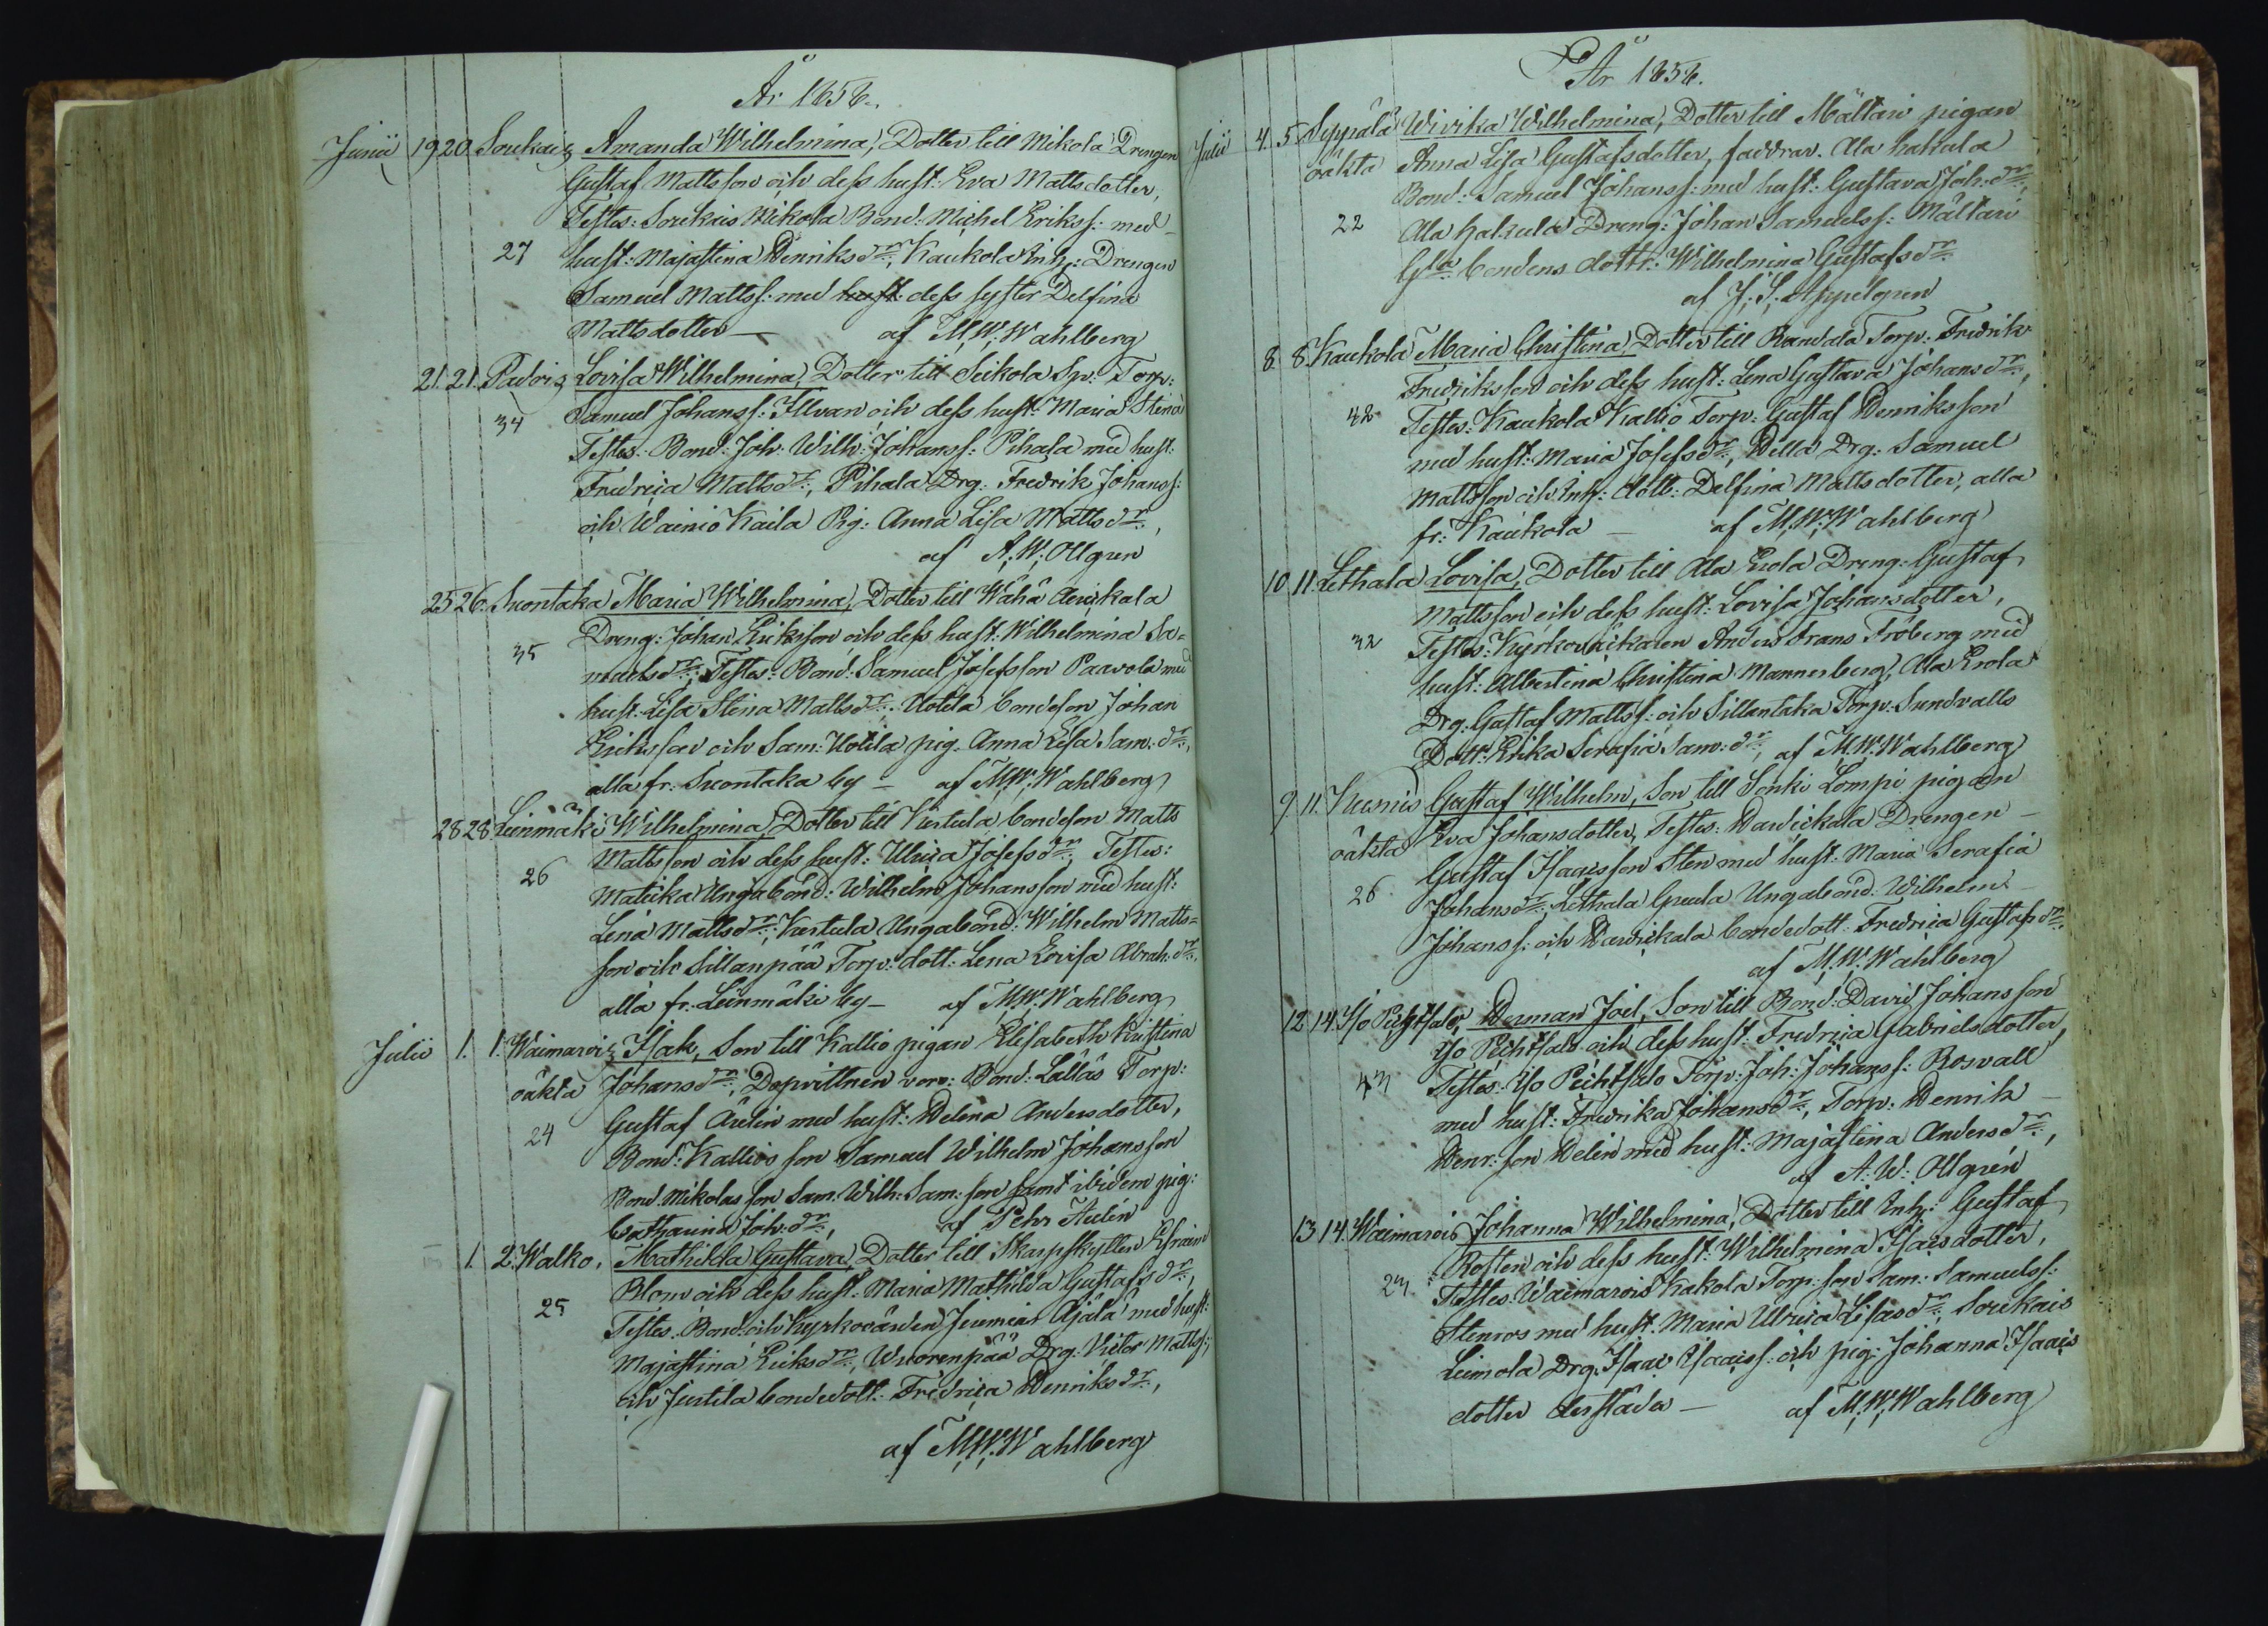 År 1858.
Junii 19 20 Soukais Amanda Wilhelmina, Dotter till Mikola Drengen
Gustaf Mattsson och dess hust: Eva Mattsdotter,
Testes: Soukais Mikola Bond: Michel Erikss: med
27 hust: Majastina Henriksdr:, Kaukola Inh: Drengen
Samuel Mattss: med hust: dess syster Delfina
Mattsdotter — af M.W. Wahlberg
21. 21. Padois Lovisa Wilhelmina, Dotter till Seikola Sp: Torp:
34 Samuel Johanss: Illvan och dess hust: Maria Stina
Testes: Bond: Joh: Wilh: Johanss: Pihala med hust:
Fredrica Mattsdr:, Pihala Drg: Fredrik Johanss:
och Wainio Kaila Pig: Anna Lisa Mattsdr:,
af A.W. Ollgren
25 26. Suontaka Maria Wilhelmina, Dotter till Wähä Anikala
Dreng: Johan Eriksson och dess hust: Wilhelmina Sa=
35 muelsdr:, Testes: Bond: Samuel Josefsson Paavola med
hust: Lisa Stina Mattsdr:, Uotila bondeson Johan
Eriksson och Sam: Uotila pig: Anna Lisa Sam: dr:,
alla fr: Suontaka by — af M.W. Wahlberg
28 28 Leinmäki Wilhelmina, Dotter till Kurtula bondeson Matts
Mattsson och dess hust: Ulrica Josefsdr:, Testes:
26 Maticka Ungabond: Wilhelm Johansson med hust:
Lena Mattsdr:, Kurtula Ungabond: Wilhelm Matts=
son och Sillanpää Torp: dott: Lena Lovisa Abrah: dr:,
alla fr: Leinmäki by — af M.W. Wahlberg
Julii 1. 1. Waimarois Isak, Son till Kallio pigan Elisabeth Kristina
oäkta Johansdr:, Dopvittnen voro: Bond: Lallas Torp:
24 Gustaf Aulin med hust: Helena Andersdotter,
Bond: Kallios son Samuel Wilhelm Johansson
Bond. Mikolas son Sam: Wilh: Sam: son samt ibidem pig:
Catharina Joh: dr:, af Pehr Aulin
1. 2. Walko, Mathilda Gustava, Dotter till Skarpskytten Efraim
Blom och dess hust: Maria Mathilda Gustafsdr:,
25 Testes: Bond: och kyrkovärden Jeremias Äjälä med hust:
Majastina Eriksdr:, Wuorenpää Drg: Victor Mattss:,
och Juutila bondedott: Fredrica Henriksdr:,
af M.W. Wahlberg
År 1858.
Julii 4. 5. Seppälä Wivika Wilhelmina, Dotter till Mältari pigan
oäkta Anna Lisa Gustafsdotter, faddrar: Ala hakula
Bond: Samuel Johanss: med hust: Gustava Joh: dr:,
22 Ala hakula Dreng: Johan Samuelss: Mältari
Gla bondens dottr: Wilhelmina Gustafsdr:
af J. S. Appelgren
8. 8 Kaukola Maria Christina, Dotter till Randala Torp: Fredrik
Fredriksson och dess hust: Lena Gustava Johansdr:,
42 Testes: Kaukola Kallio Torp: Gustaf Henriksson
med hust: Maria Josefsdr:, Hella Drg: Samuel
Mattsson och Inh: dott: Delfina Mattsdotter, alla
fr: Kaukola — af M.W. Wahlberg
10 11. Lethala Lovisa, Dotter till Ala Erola Dreng: Gustaf
Mattsson och dess hust: Lovisa Johansdotter,
32 Testes: Kyrkovaktaren Anders Frans Fröberg med
hust: Albertina Christina Mannerberg, Ala Erola
Drg: Gustaf Mattss: och Sillantaka Torp: Sundvalls
Dott: Erika Serafia Sam: dr:, af M.W. Wahlberg
9. 11. Gustaf Wilhelm, Son till Sonki Lempi pigan
oäkta Eva Johansdotter, Testes: Haudikala Drengen —
Gustaf Isaacsson Sten med hust: Maria Serafia
26 Johansdr:, Lethala Greula Ungabond: Wilhelm
Johanss: och bondedott: Fredrica Gustafsdr:,
af M.W. Wahlberg
12 14 Herman Joel, Son till Bond: David Johansson
och dess hust: Fredrica Gabrielsdotter,
Testes: Torp: Joh: Johanss: Rosvall
med hust: Fredrika Johansdr:, Torp: Henrik
Henr: son Helin med hust: Majastina Andersdr:,
af A. W. Ollgren
13 14. Waimarois Johanna Wilhelmina, Dotter till Inh: Gustaf
Rosten och dess hust: Wilhelmina Isacsdotter,
Testes: Waimarois Kakola Torp: son Sam: Samuelss:
Stenros med hust: Maria Ulrica Lisasdr:, Soukais
Leimola Drg: Isaac Isaacss: och pig: Johanna Isaacs
dotter derstädes — af M.W. Wahlberg